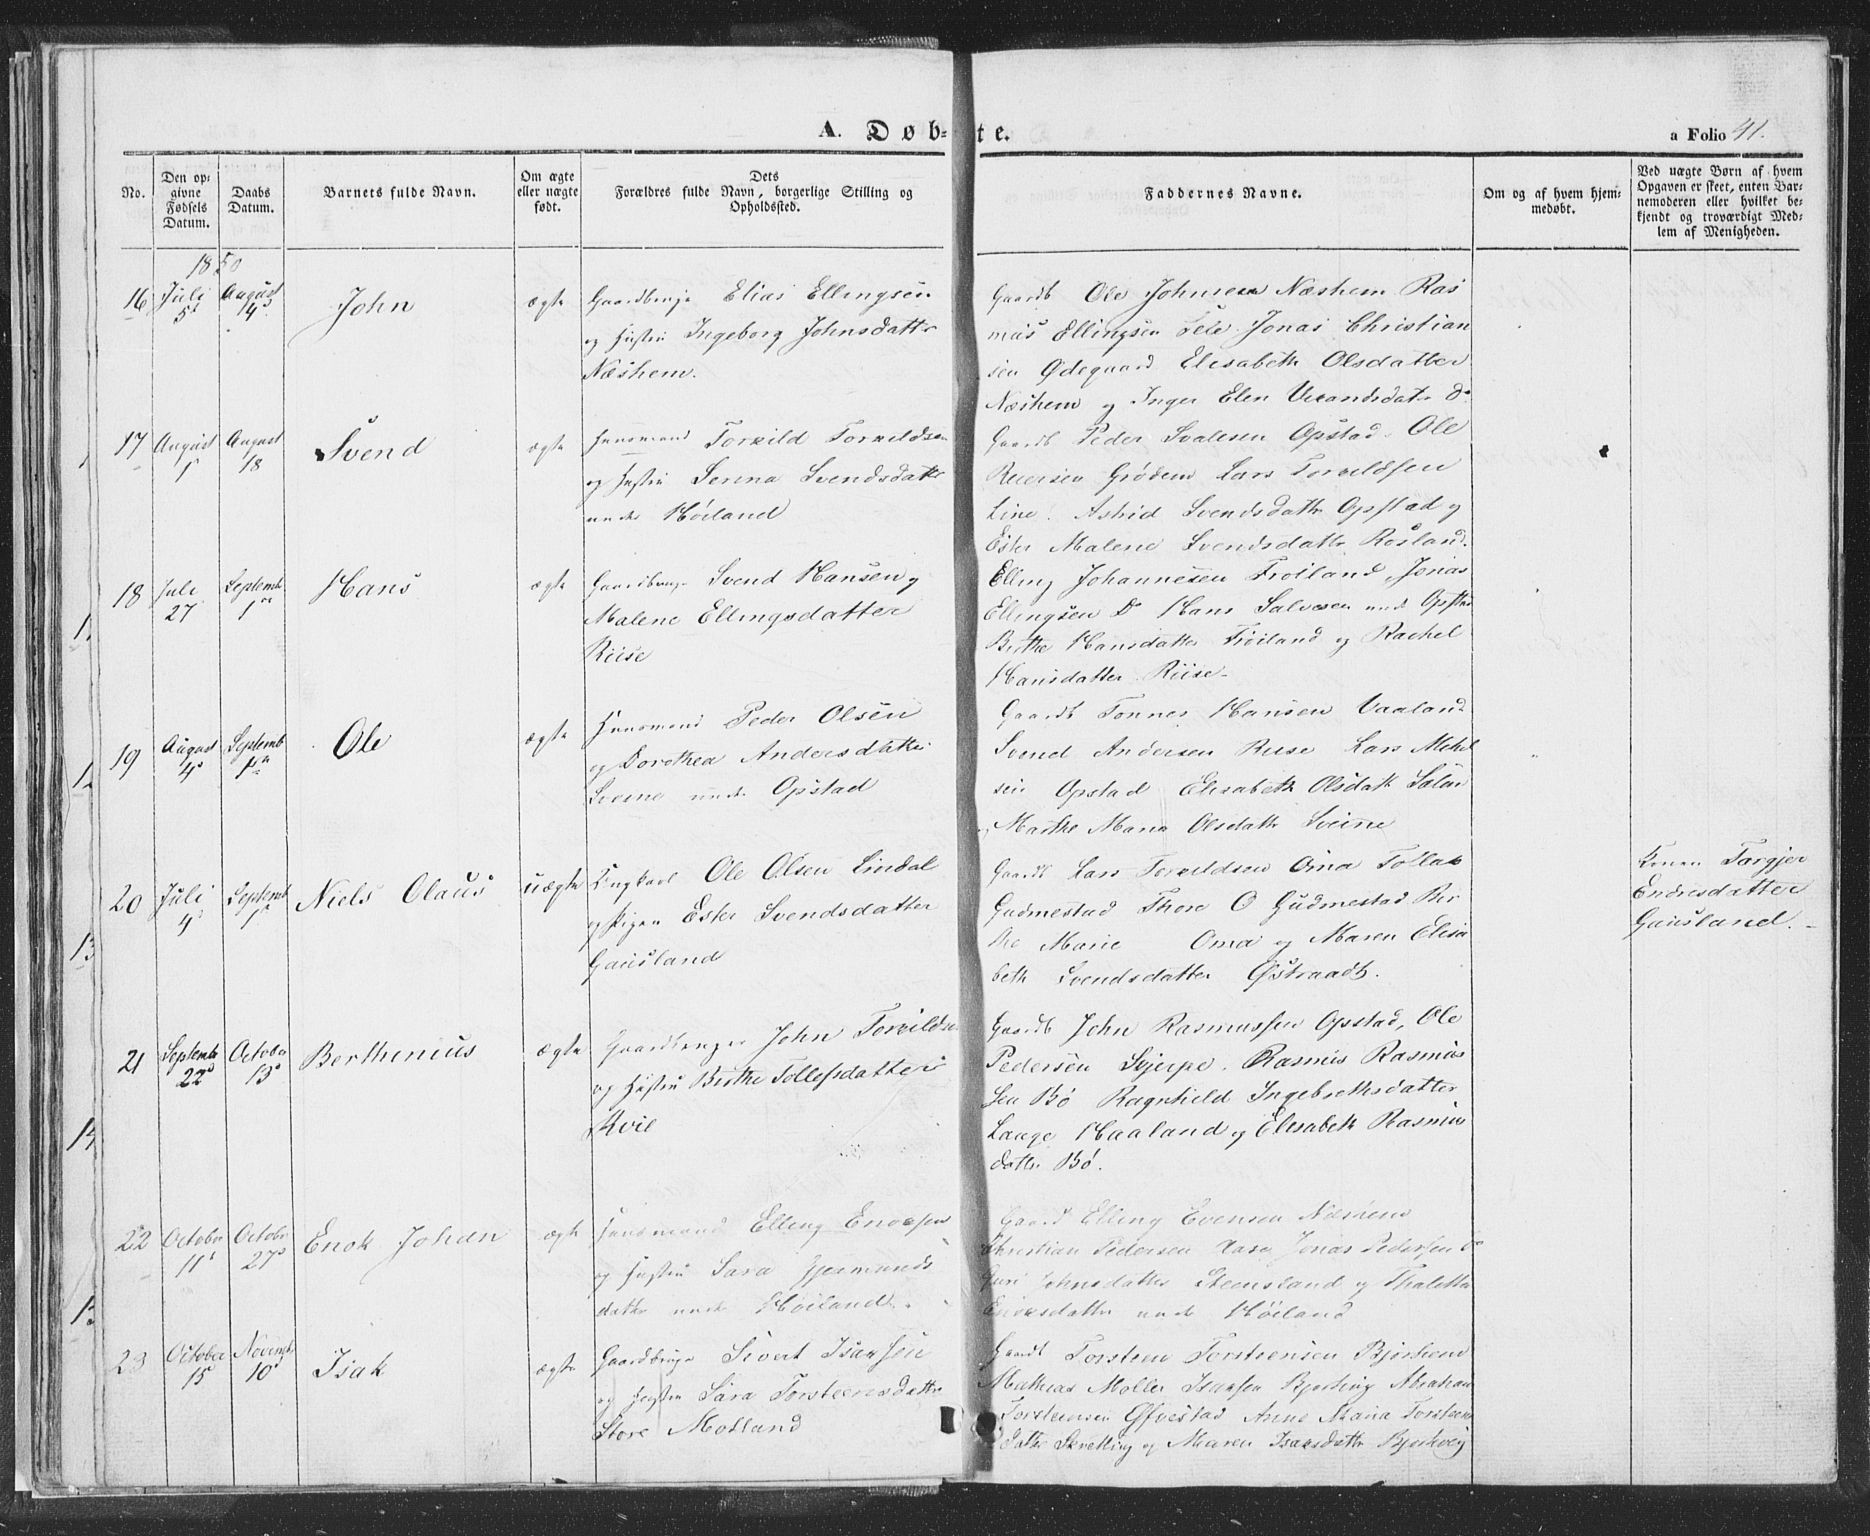 A. Døb-te.
a Folio 41.
No.
Den op-
givne
Fødsels
Datum.
Daabs
Datum.
Barnets fulde Navn.
Om ægte
eller uægte
født.
Dets
Forældres fulde Navn, borgerlige Stilling og
Opholdssted.
Faddernes Navne.
Om og af hvem hjem-
medøbt.
Ved uægte Børn af hvem
Opgaven er skeet, enten Bar-
nemoderen eller hvilket be-
kjendt og troværdigt Med-
lem af Menigheden.
1850
16 Juli 5 August 14 John ægte
Gaardbruger Elias Ellingsen
og Hustru Ingeborg Johnsdatter
Næshem.
Gaardb Ole Johnsen Næshem Ras
mus Ellingsen Lele Jonas Christian
sen Ødegaard Elisabeth Olsdatter
Næshem og Inger Elen
17 August 1 August 18 Svend ægte
Huusmand Torkild Torkildsen
og Hustru Serina Svendsdatter
under Høiland
Gaardb Peder Svalesen Opstad. Ole
Reiersen Grødem Lars Torkildsen
Line. Astrid Svendsdatter Opstad og
Ester Malene Svendsdatter Rosland.
18 Juli 27 Septemb 1 Hans ægte
Gaardbruger Svend Hansen og
Malene Ellingsdatter
Riise
Elling Johannesen Frøiland, Jonas
Ellingsen Do Hans Salvesen und Opstad
Birthe Hansdatter Frøiland og Rachel
Hansdatter Riise
19 August 4 Septemb 1 Ole ægte
Huusmand Peder Olsen
og Dorothea Andersdatter
Sveine under Opstad
Gaardb Tønnes Hansen Vaaland
Svend Andersen Riise Lars Mikel
sen Opstad Elisabeth Olsdatt
Marthe Maria Olsdatter Sveine
20 Juli 4 Septemb 1 Niels Olaus uægte
Ungkarl Ole Olsen Lindal
og Pigen Ester Svendsdatter
Gausland
Gaardb Lars Torkildsen Oma Tollak
Gudmestad Thore O Gudmestad Bir
the Marie Oma og Maren Elisa
beth Svendsdatter Østraadt.
Konen Torgjer
Endresdatter
Gausland.
21 Septemb 22 October 13 Berthinius ægte
Gaardbruger John Torkildsen
og Hustru Birthe Tollefsdatter
Kvie
Gaardb John Rasmussen Opstad, Ole
Pedersen Skjerpe. Rasmus Rasmus
sen Bø Ragnhild Ingebrethsdatter
Lauge Haaland og Elisabeth Rasmus
datter Bø.
22 October 11 October 27 Enok Johan ægte
Huusmand Elling Enoksen
og Hustru Sara Gjermunds
datter under Høiland.
Gaard Elling Evensen
Christian Pedersen Aase Jonas Pedersen Do
Guri Johnsdatter Steensland og Thaletta
Enoksdatter under Høiland
23 October 15 Novemb 10 Isak ægte
Gaardbruger Sivert Isaksen
og Hustru Sara Torsteensdatter
Store Motland
Gaardb Torsteen Torsteensen Bjorheim
Mathias Moller Isaksen Abraham
Torsteensen Øfvestad Anne Maria Torsteens
datter Skretting og Maren Isaksdatter